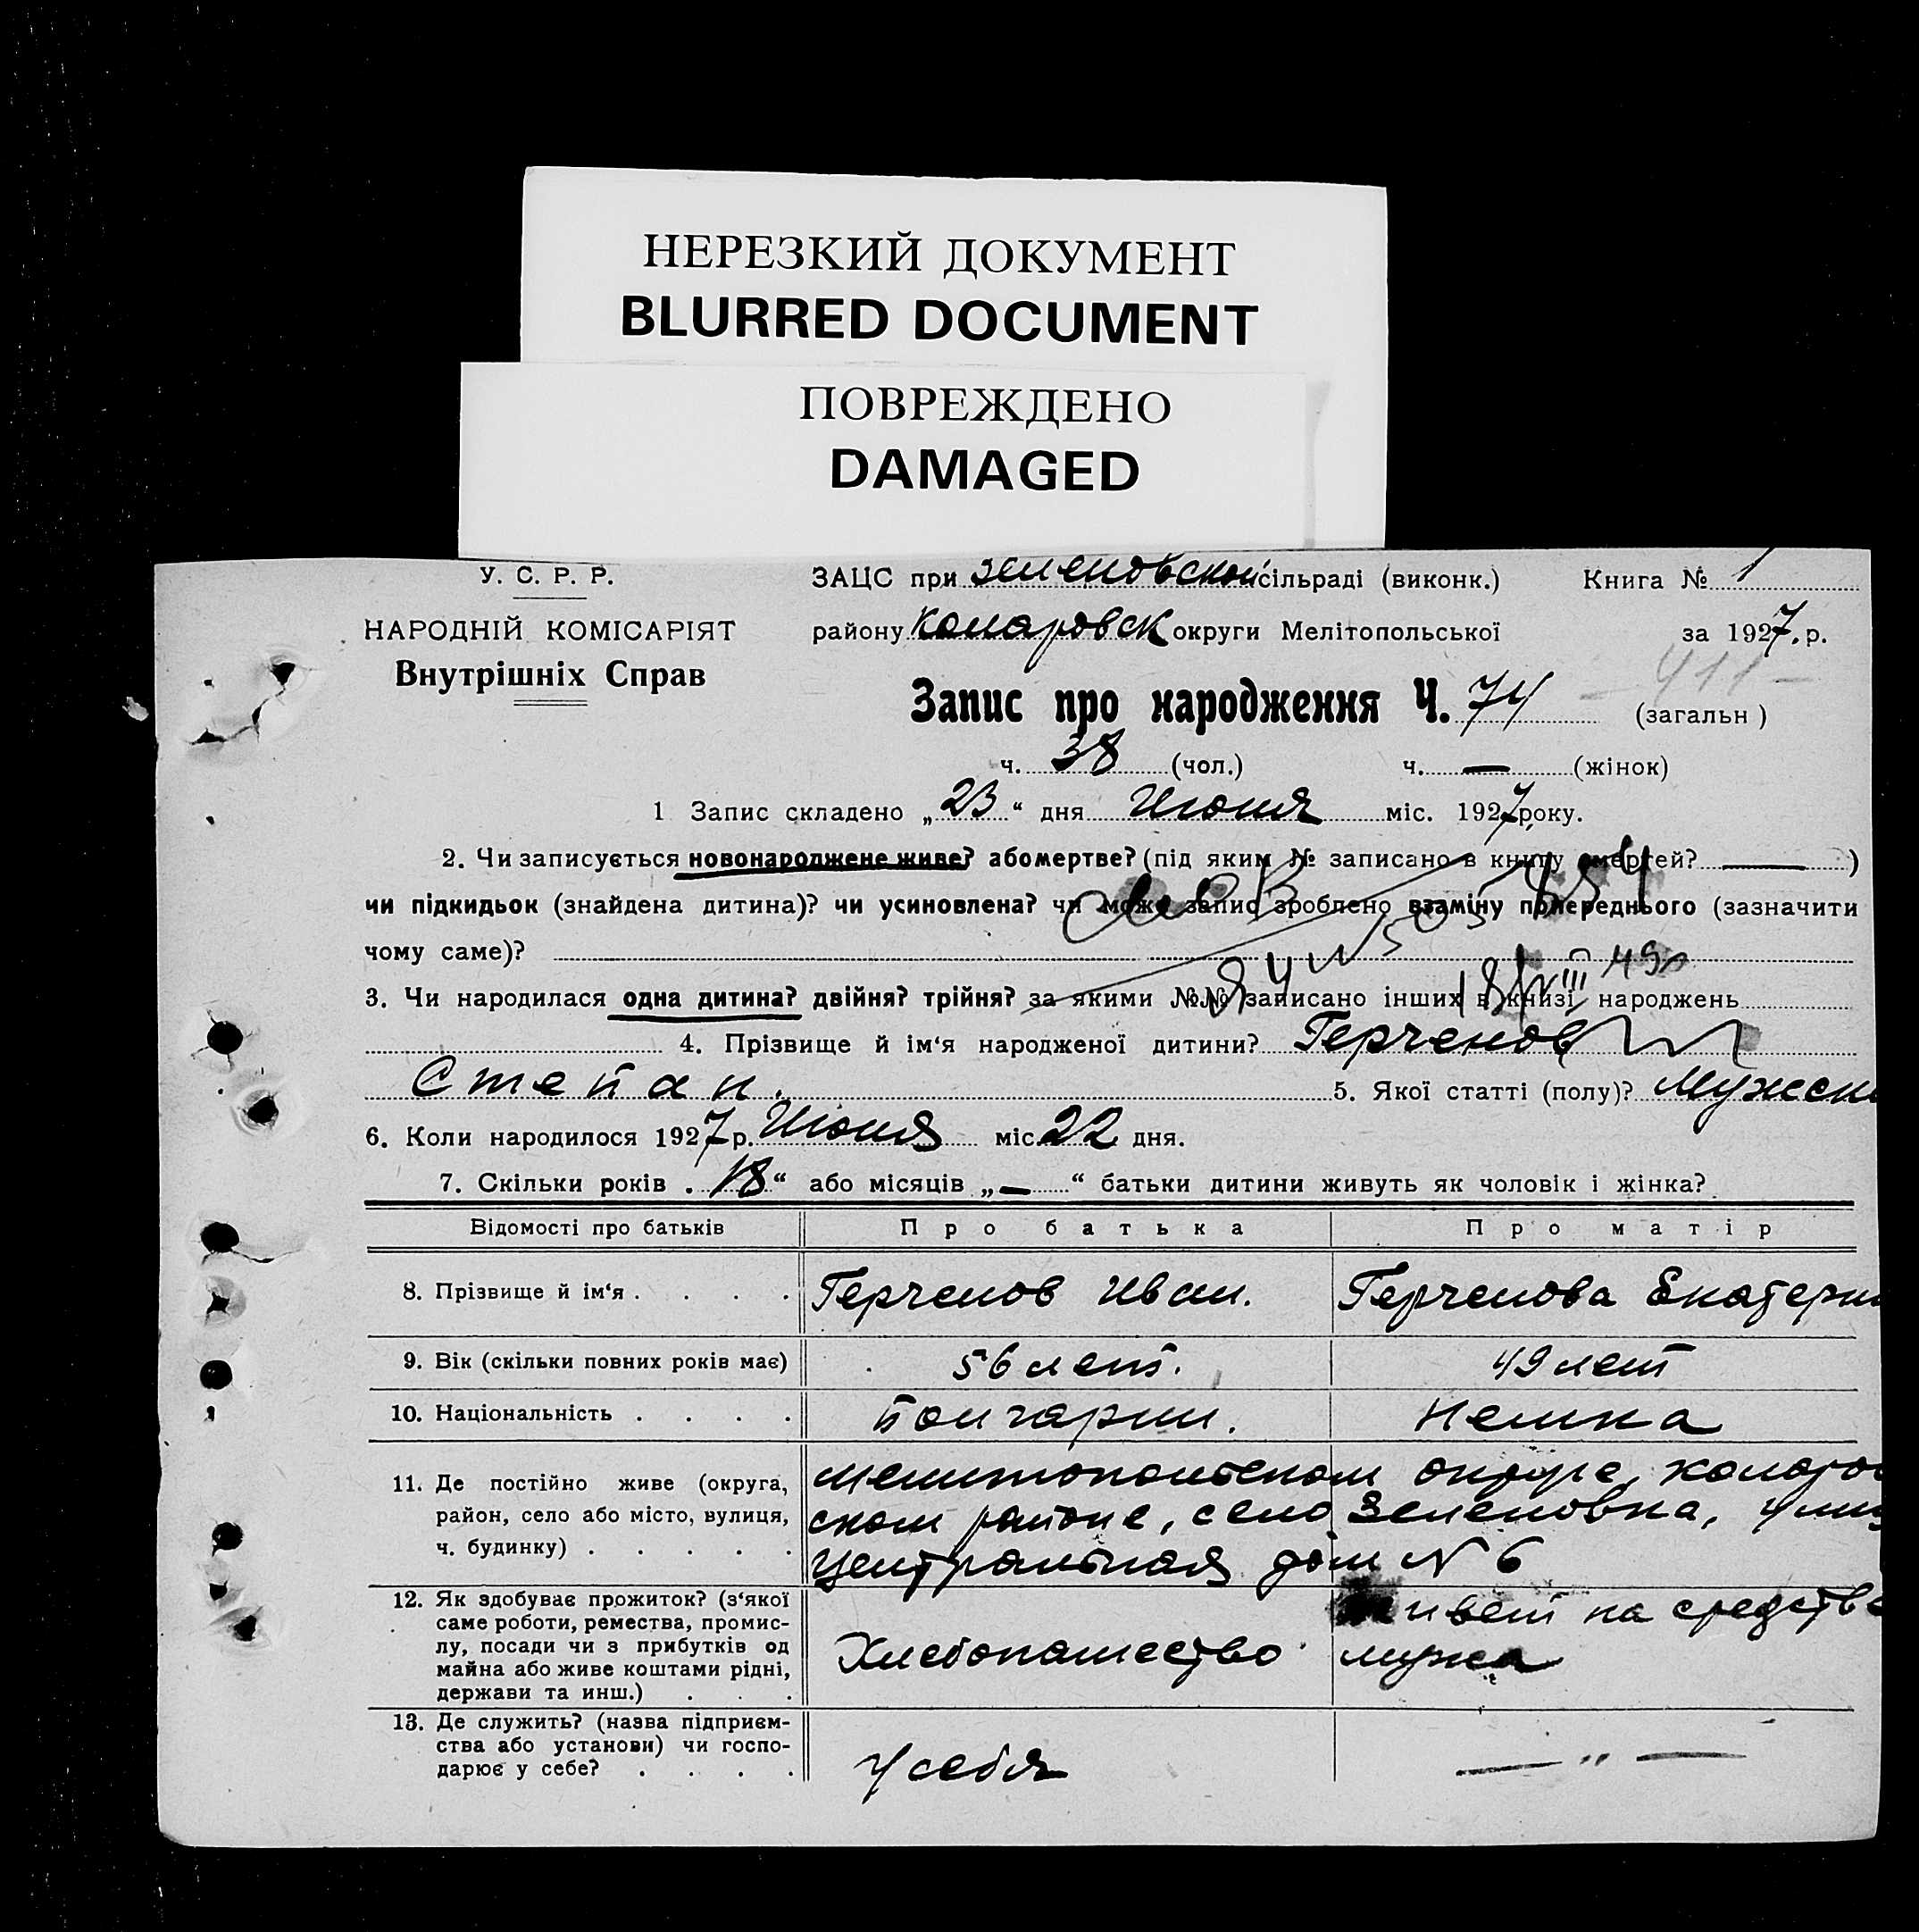 НЕРЕЗКИЙ ДОКУМЕНТ
BLURRED DOCUMENT
ПОВРЕЖДЕНО
DAMAGED
У. С. Р. Р.
НАРОДНІЙ КОМІСАРІЯТ
Внутрішніх Справ
ЗАЦС при Зеленовской сільраді (виконк.) Книга № 1
району Коларовск округи Мелітопольської за 1927. р.
- 411 -
Запис про народження Ч. 74 (загальн)
ч. 38 (чол.) ч. — (жінок)
1 Запис складено „23" дня Июня міс. 1927 року.
2. Чи записується новонароджене живе? або мертве? (під яким № записано в книгу смертей? — )
чи підкидьок (знайдена дитина)? чи усиновлена? чи може запис зроблено взаміну попереднього (зазначити
чому саме)?
3. Чи народилася одна дитина? двійня? трійня? за якими №№ записано інших в книзі народжень
4. Прізвище й ім‘я народженої дитини? Герченов
Степан. 5. Якої статті (полу)? Мужеск
6. Коли народилося 1927 р. Июня міс. 22 дня.
7. Скільки років . 18 “ або місяців „ — “ батьки дитини живуть як чоловік і жінка?
Відомості про батьків Про батька Про матір
8. Прізвище й ім‘я . . . . Герченов Иван. Герченова Екатерин
9. Вік (скільки повних років має) 56 лет. 49 лет
10. Національність . . . . Болгарин. Немка
11. Де постійно живе (округа,
район, село або місто, вулиця,
ч. будинку) . . . . .
Мелитопольском округе, Коларов
ском районе, село Зеленовка, улиц
Центральная дом № 6
12. Як здобуває прожиток? (з‘якої
саме роботи, ремества, промис-
лу, посади чи з прибутків од
майна або живе коштами рідні,
держави та инш.) . . .
Хлебопашество
живет на средства
мужа
13. Де служить? (назва підприєм-
ства або установи) чи госпо-
дарює у себе? . . . .
у себя
— „ —